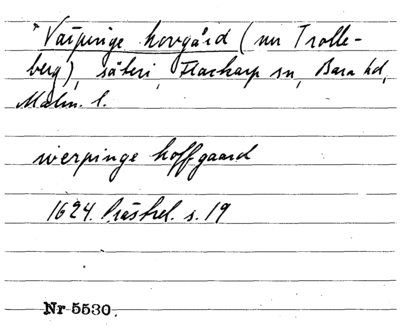 * Värpinge hovgård (nu Trolle-
berg), säteri, Flackarp sn, Bara hd,
Malm. l.
werpinge hoffgaard
1624. Prästrel. s. 19
Nr 5530.